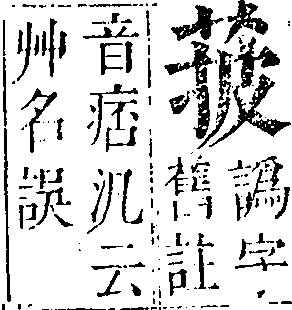 譌字.
舊註
音痞汎云
艸名誤